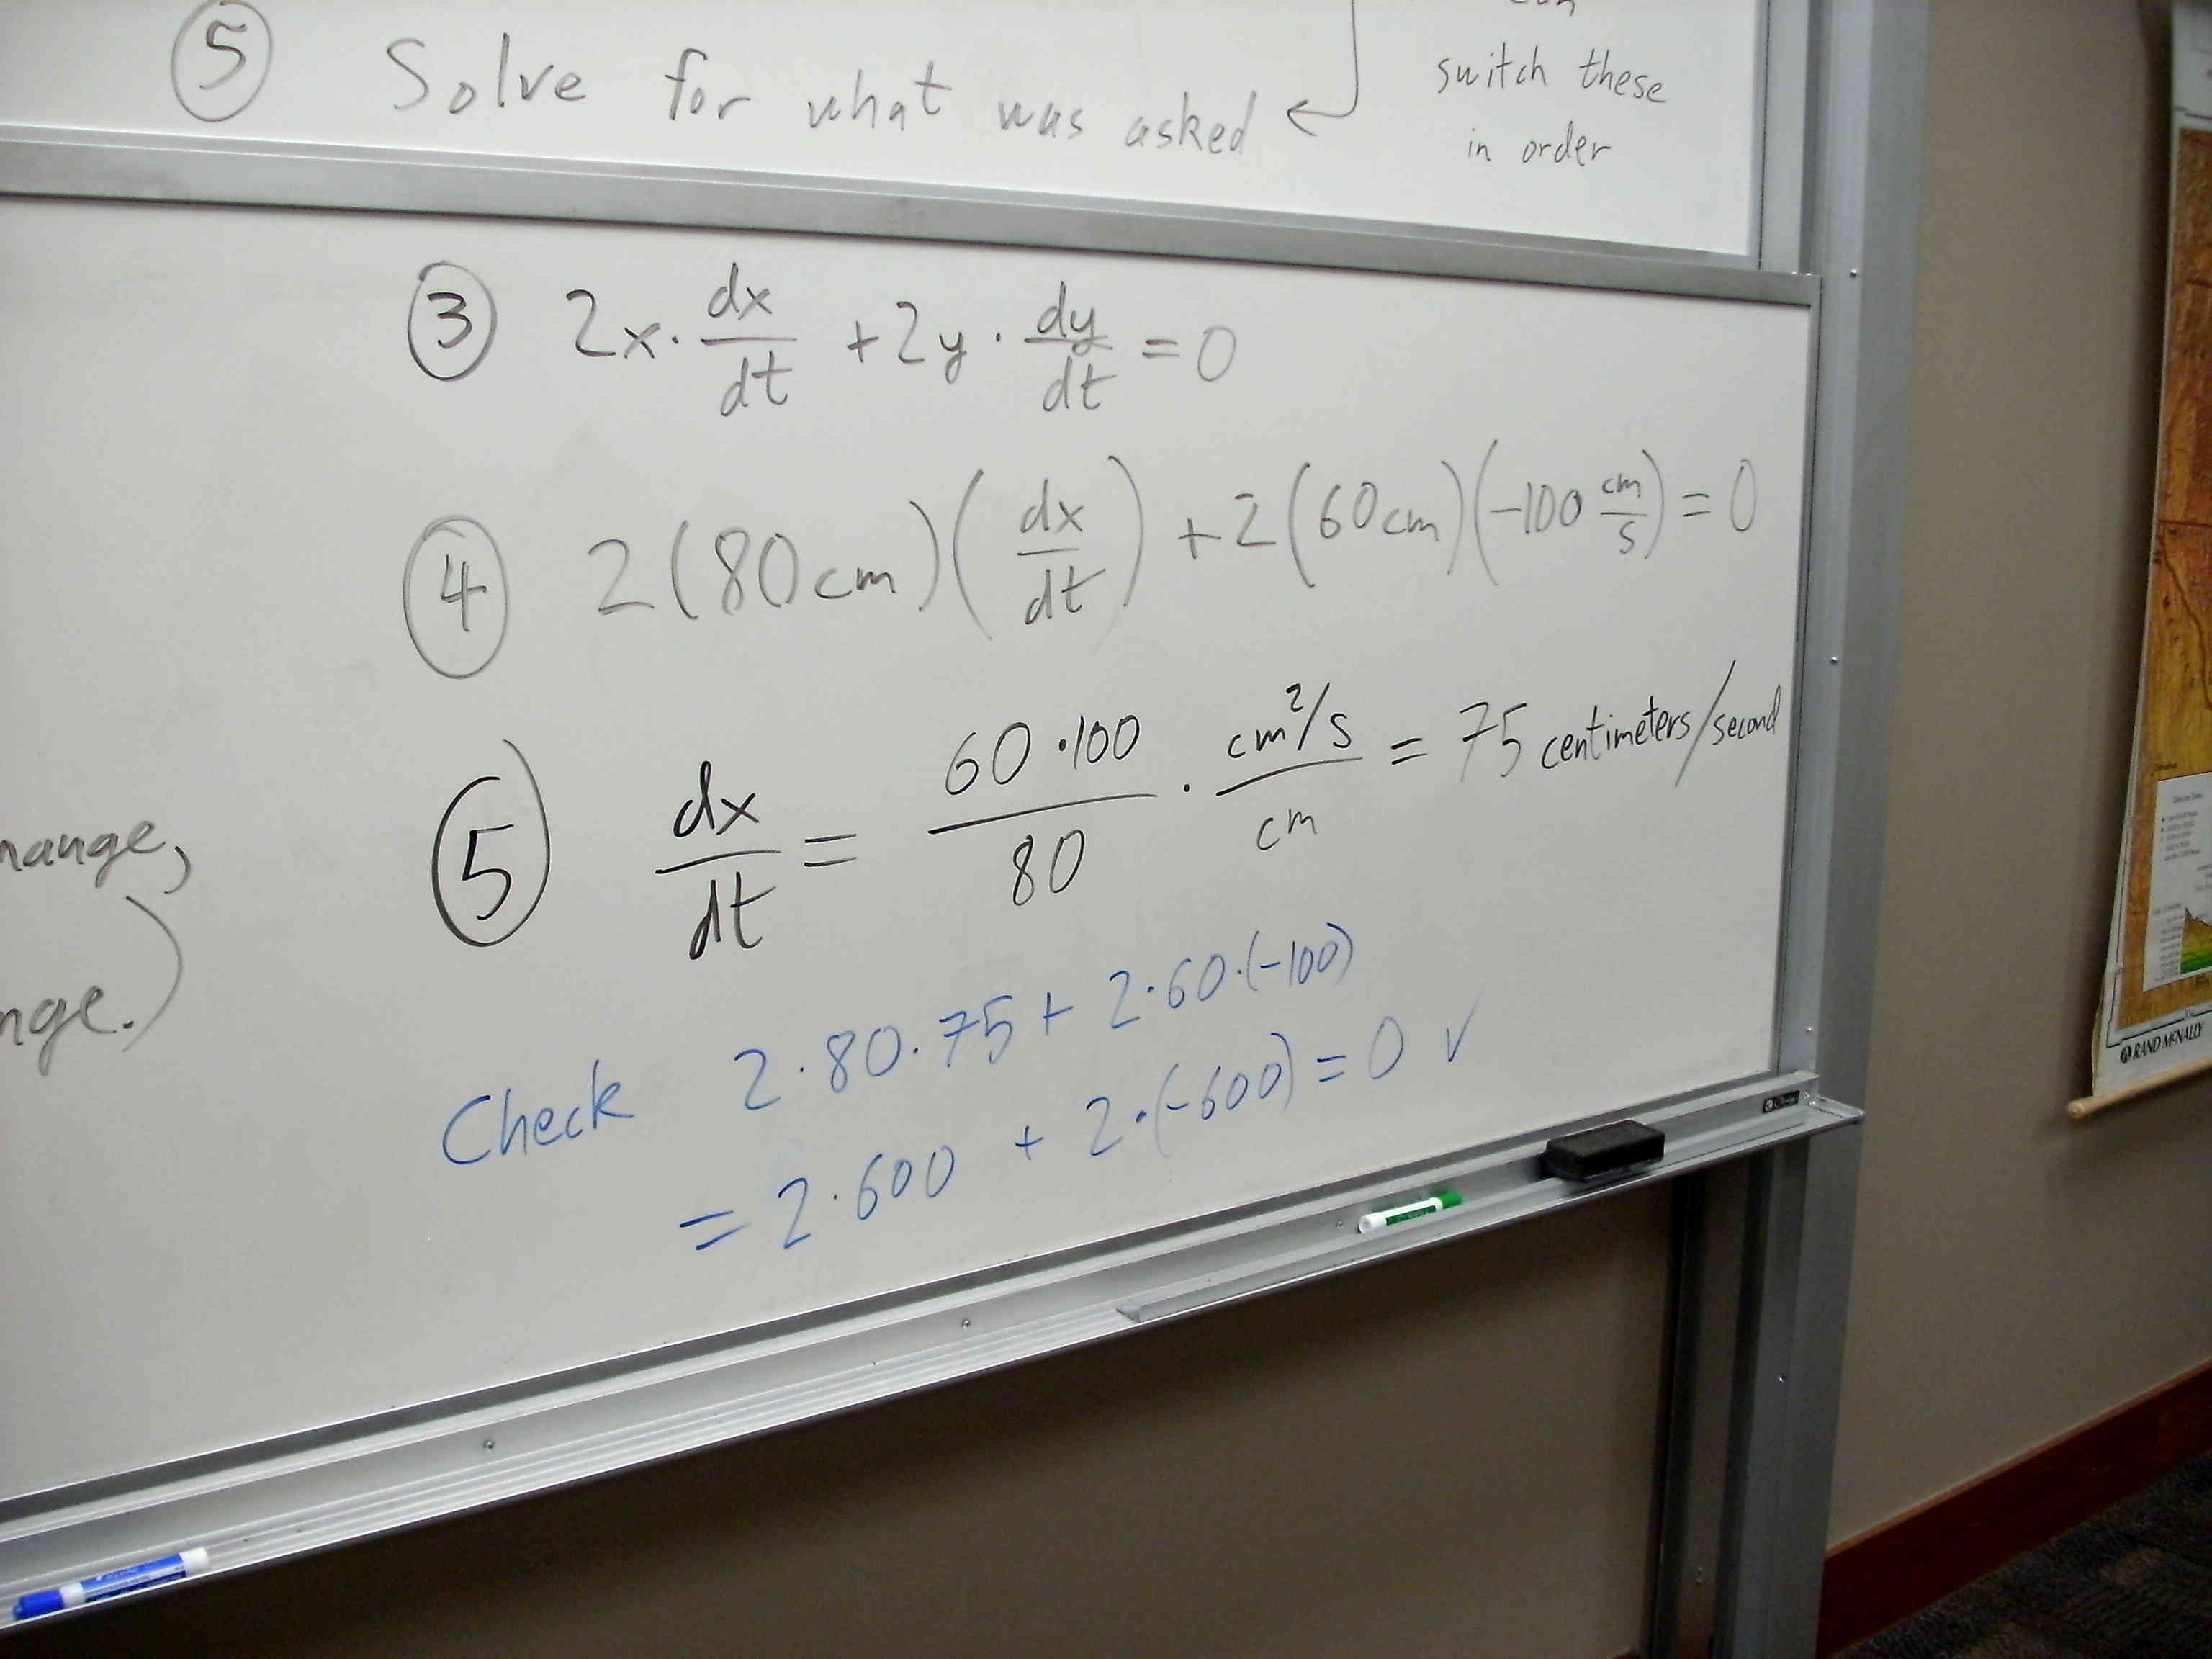 ⑤ Solve for what was asked
switch these
in order
③ 2x · dx/dt + 2y · dy/dt = 0
④ 2(80cm)(dx/dt) + 2(60cm)(-100 cm/s) = 0
⑤ dx/dt = 60·100/80 · cm²/s/cm = 75 centimeters/second
Check 2·80·75 + 2·60·(-100)
= 2·600 + 2·(-600) = 0 ✓
RAND McNALLY